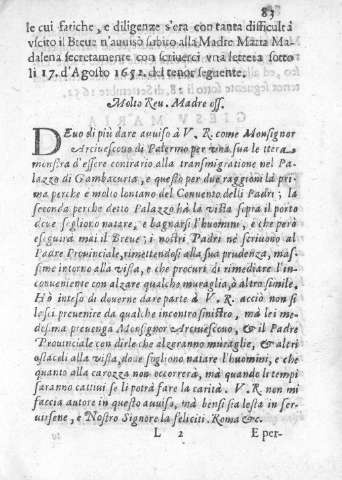 83
le cui fatiche, e diligenze s'era con tanta difficultà
vscito il Breue n'auuisò subito alla Madre Maria Ma-
dalena secretamente con scriuerci vna lettera sotto
li 17. d'Agosto 1652. del tenor seguente.
Molto Reu. Madre oss.
DEuo di più dare auuiso à V. R. come Monsignor
Arciuescouo di Palermo per vna sua lettera
mostra d'essere contrario alla transmigratione nel Pa-
lazzo di Gambacurta, e questo per due raggioni la pri-
ma perche è molto lontano del Conuento delli Padri; la
seconda perche detto Palazzo hà la vista sopra il porto
doue sogliono natare, e bagnarsi l'huomini, e che però
eseguirà mai il Breue; i nostri Padri nè scriuono al
Padre Prouinciale, rimettendosi alla sua prudenza, mas-
sime intorno alla vista, e che procuri di rimediare l'in-
conueniente con alzare qualche muraglia, ò altro simile.
Hò inteso di douerne dare parte à V. R. acciò non si
lasci preuenire da qualche incontro sinistro, mà lei me-
desma preuenga Monsignor Arciuescouo, & il Padre
Prouinciale con dirle che alzeranno muraglie, & altri
ostacoli alla vista, doue sogliono natare l'huomini, e che
quanto alla carozza non occorrerà, mà quando li tempi
saranno cattiui se li potrà fare la carità. V. R. non mi
faccia autore in questo auuiso, mà bensì sia lesta in ser-
uirsene, e Nostro Signore la feliciti. Roma &c.
L 2 E per-